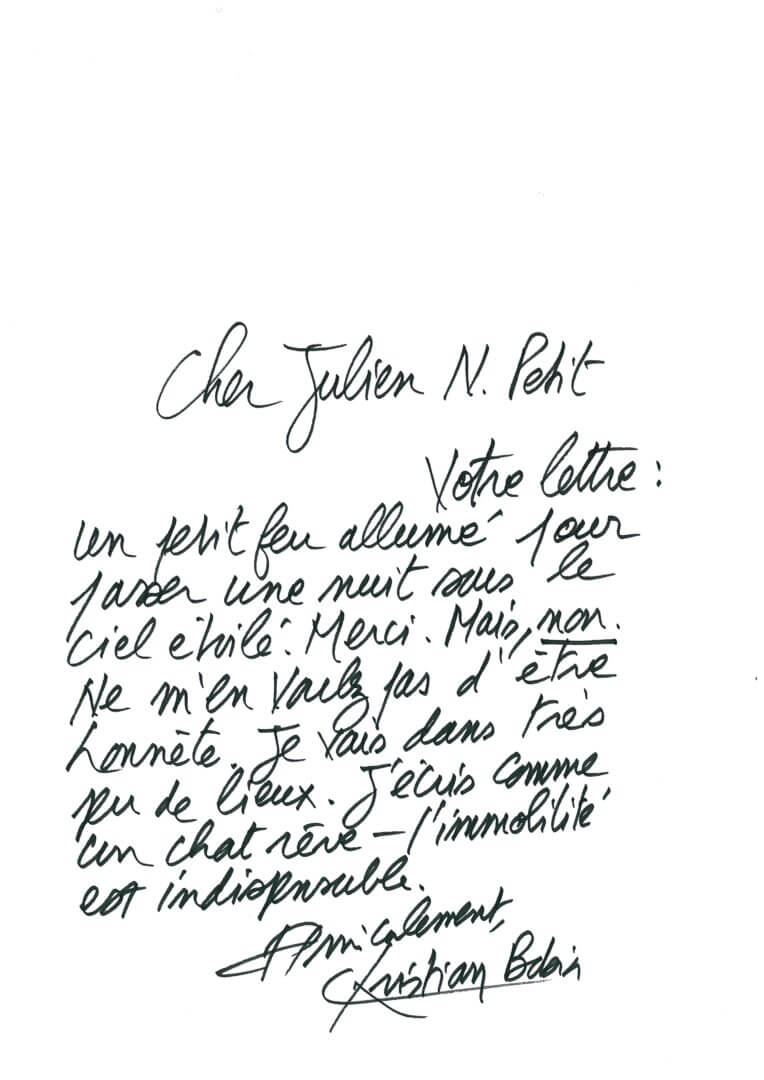 Cher Julien N. Petit
Votre lettre :
un petit feu allumé pour
passer une nuit sous le
ciel étoilé. Merci. Mais, non.
Ne m'en voulez pas d'être
honnête. Je vais dans très
peu de lieux. J'écris comme
un chat rêve – l'immobilité
est indispensable.
Amicalement,
Christian Bobin